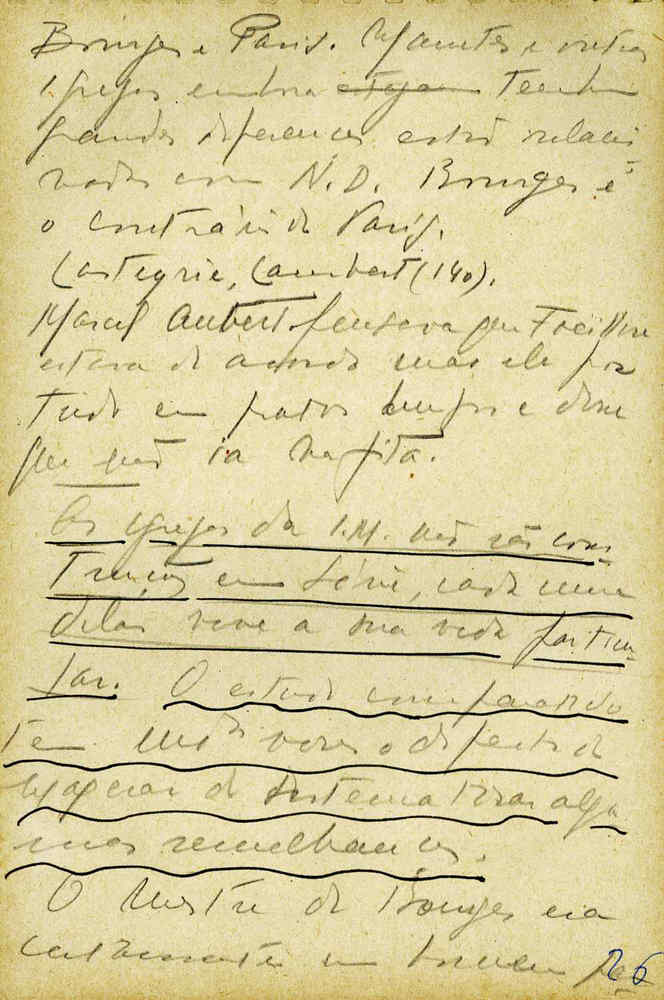 Bourges e Paris. Mantes e outras
igrejas embora tenham
grandes diferenças estão relacio
nadas com N.D. Bourges é
o contrário de Paris.
Lasteyrie, Lambert (140).
Marcel Aubert pensava que
estava de acordo mas ele poz
tudo em pratos limpos e disse
que não ia na fita.
As igrejas da I.M. não são cons
truções em série, cada uma
delas vive a sua vida particu
lar. O estudo comparado
tem muitas vezes o defeito de
exagerar de sistematizar algu
mas semelhanças.
O Mestre de Bourges era
certamente um homem
26